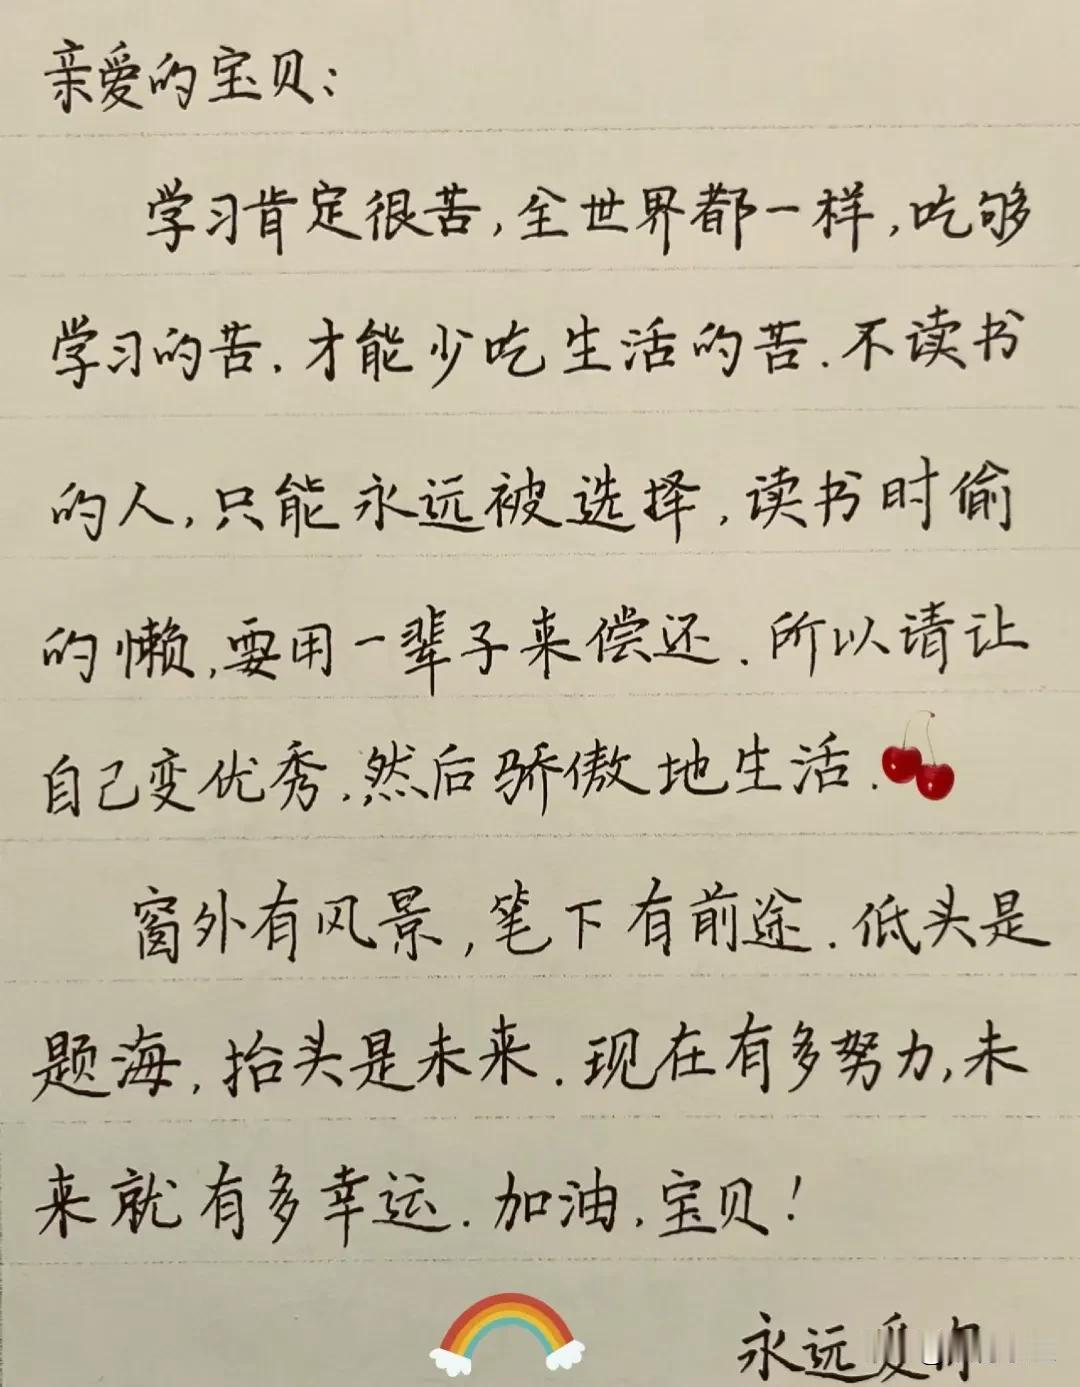 亲爱的宝贝:
学习肯定很苦,全世界都一样,吃够
学习的苦.才能少吃生活的苦.不读书
的人,只能永远被选择,读书时偷
的懒,要用一辈子来偿还.所以请让
自己变优秀.然后骄傲地生活.
窗外有风景,笔下有前途.低头是
题海,抬头是未来.现在有多努力,未
来就有多幸运.加油.宝贝!
永远爱你